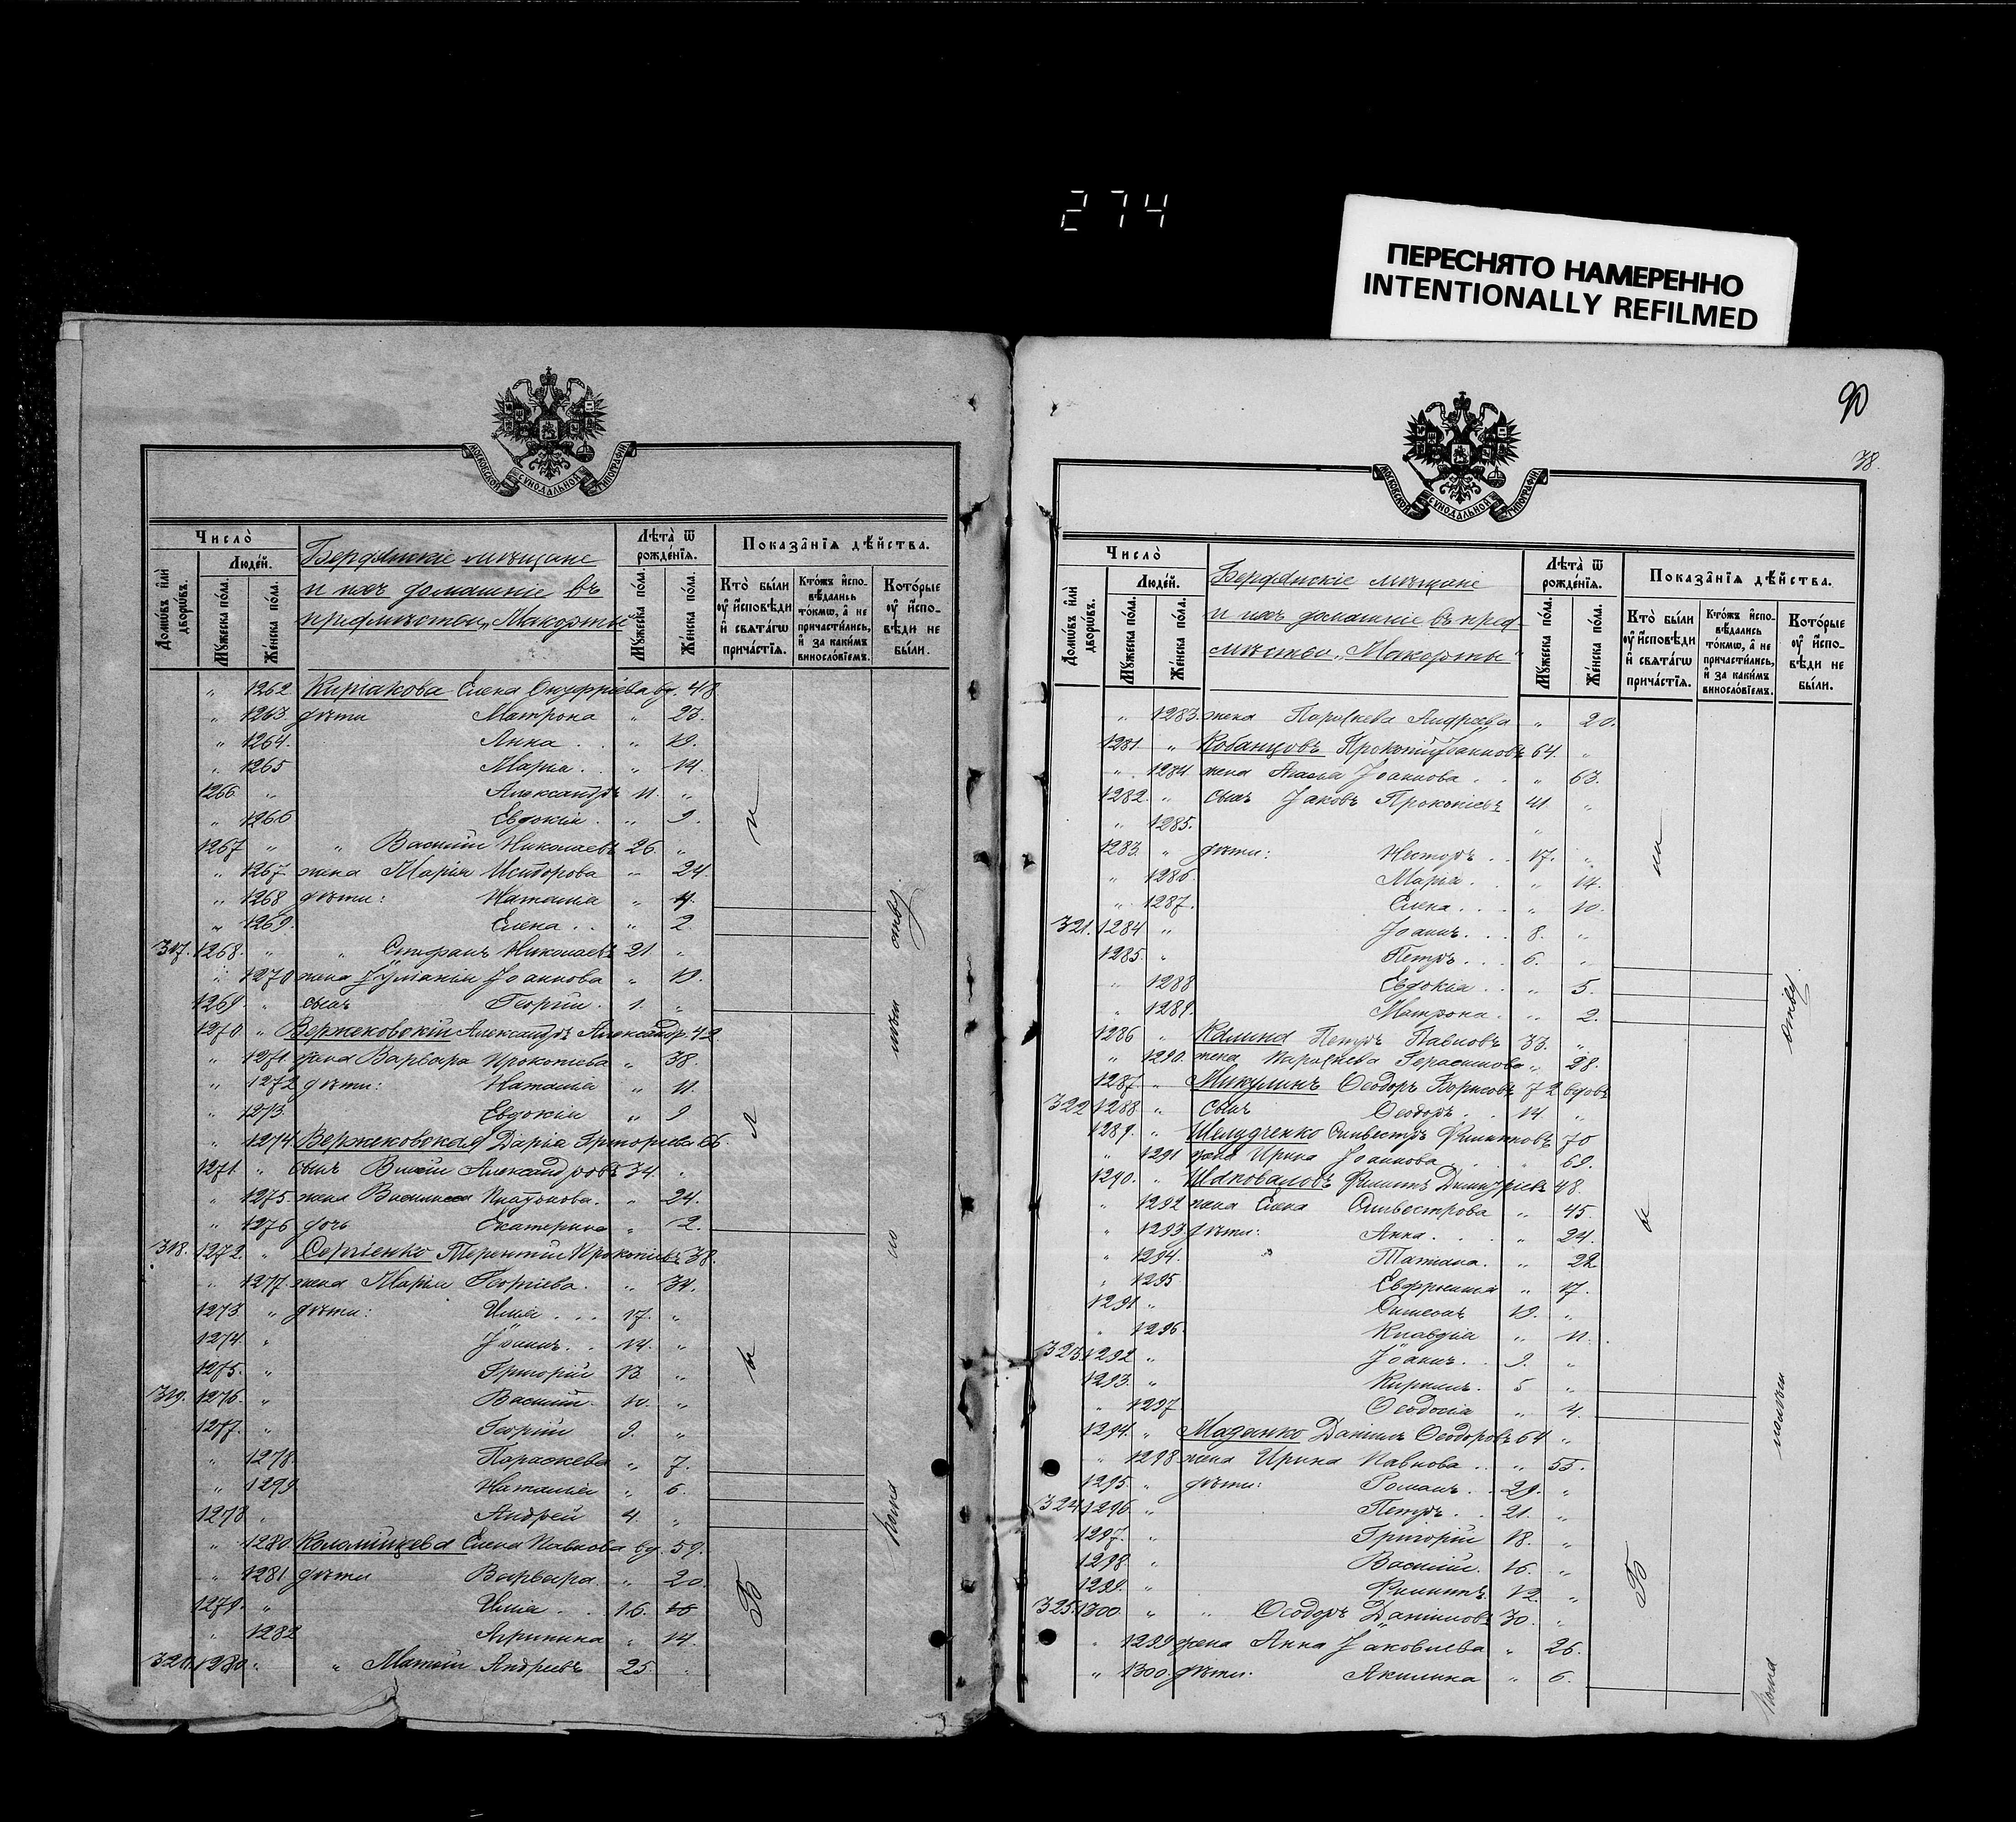 274
ПЕРЕСНЯТО НАМЕРЕННО
INTENTIONALLY REFILMED
МОСКОВСКОЙ СѴНОДАЛЬНОЙ ТИПОГРАФІИ
Число̀
Домѡ́въ и҆лѝ дворѡ́въ.
Люде́й.
Мꙋ́жеска по́ла.
Же́нска по́ла.
Бердянскіе мѣщане
и ихъ домашніе въ
предмѣстьи „Макорты"
Лѣ́та ѿ рожде́нїѧ.
Мꙋ́жеска по́ла.
Же́нска по́ла.
Показа̑нїѧ дѣ́йства.
Кто̀ бы́ли оу҆ и҆спо́вѣди и҆ свѧта́гѡ прича́стїѧ.
Кто́жъ и҆спо-вѣ́дались то́кмѡ, а҆ не причасти́лись, и҆ за каки́мъ винοсло́вїемъ.
Кото́рые оу҆ и҆спо-вѣди не бы́ли.
" 1262 Киріакова Елена Онуфріева вд. 48
" 1263. дѣти Матрона " 23.
" 1264. Анна . . " 19.
" 1265 Марія . " 14.
1266 " Александръ 11. "
" 1266 Евдокія . " 9.
1267 " " Василій Николаевъ 26. "
" 1267 жена Марія Исидорова " 24
" 1268 дѣти: Наталія " 4.
" 1269. Елена . . " 2.
317. 1268. " " Стефанъ Николаевъ 21. "
" 1270 жена Іуліанія Іоаннова " 19.
1269. " сынъ Георгій . 1. "
1270 " Вержековскій Александръ Александр. 42
" 1271 жена Варвара Прокопіева " 38.
" 1272 дѣти: Наталія " 11.
" 1273 Евдокія " 9
" 1274. Вержековская Дарія Григоріева 66.
1271. " сынъ Василій Александровъ 34. "
" 1275. жена Василисса " 24.
" 1276 дочь Екатерина " 2.
318. 1272. " Сергіенко Терентій Прокопіевъ 38.
" 1277. жена Марія Георгіева . " 34.
1273 " дѣти: Илія . . . 17. "
1274. " Іоаннъ . . 14. "
1275. " Григорій 13. "
319. 1276. " Василій 10. "
1277. " Георгій 9. "
" 1278. Параскева " 7.
" 1299 Наталія " 6.
1278 " Андрей 4. "
" 1280. Коломійцева Елена Павлова вд. 59.
" 1281 дѣти Варвара " 20.
1279. " Илія . . 16.
" 1282 Агрипина " 14.
320. 1280. " " Матѳій Андреевъ 25 "
90
38.
МОСКОВСКОЙ СѴНОДАЛЬНОЙ ТИПОГРАФІИ
Число̀
Домѡ́въ и҆лѝ дворѡ́въ.
Люде́й.
Мꙋ́жеска по́ла.
Же́нска по́ла.
Бердянскіе мѣщане
и ихъ домашніе въ пред-
мѣстьи „Макорты"
Лѣ́та ѿ рожде́нїѧ.
Мꙋ́жеска по́ла.
Же́нска по́ла.
Показа̑нїѧ дѣ́йства.
Кто̀ бы́ли оу҆ и҆спо́вѣди и҆ свѧта́гѡ прича́стїѧ.
Кто́жъ и҆спо-вѣ́дались то́кмѡ, а҆ не причасти́лись, и҆ за каки́мъ винοсло́вїемъ.
Кото́рые оу҆ и҆спо-вѣди не бы́ли.
" 1283. жена Параскева Андреева " 20.
1281 " Кобанцовъ Прокопій Іоанновъ 64. "
" 1284 жена Іоаннова . . " 63.
1282. " сынъ Іаковъ Прокопіевъ 41. "
" 1285. "
1283. " дѣти: Несторъ . . 17. "
" 1286. Марія . . " 14.
" 1287. Елена . . . " 10.
321. 1284 " Іоаннъ . . . 8. "
1285. " Петръ . . . 6. "
" 1288 Евдокія . . " 5.
" 1289. Матрона . " 2.
1286 " Калина Петръ Павловъ 33. "
" 1290. жена Параскева Герасимова " 28.
1287. " Микулинъ Ѳеодоръ Борисовъ 72 вдовъ
322 1288 " Сынъ Ѳеодоръ . . 14. "
1289. " Шелудченко Сильвестръ Филиповъ 70
" 1291 жена Ирина Іоаннова . " 69.
1290. " Шаповаловъ Филипъ Димитріевъ 48.
" 1292 жена Елена Сильвестрова " 45.
" 1293 дѣти: Анна . . . " 24.
" 1294. Татіана. " 22
" 1295 Евфросинія " 17.
1291 " Симеонъ 19. "
" 1296. Клавдія " 11.
323. 1292 " Іоаннъ . . 9. "
1293. " Кириллъ . 5 "
" 1297 Ѳеодосія " 4.
1294. " Маденко Даніилъ Ѳеодоровъ 64 "
" 1298 жена Ирина Павлова . . " 55.
1295. " дѣти: Романъ . . 29. "
324 1296. " Петръ . . 21. "
1297. " Григорій 18. "
1298. " Василій. 16. "
1299. " Филиппъ. 12. "
325. 1300 " " Ѳеодоръ Даніиловъ 30. "
" 1299 жена Анна Іаковлева " 26.
" 1300 дѣти: Акилина " 6.